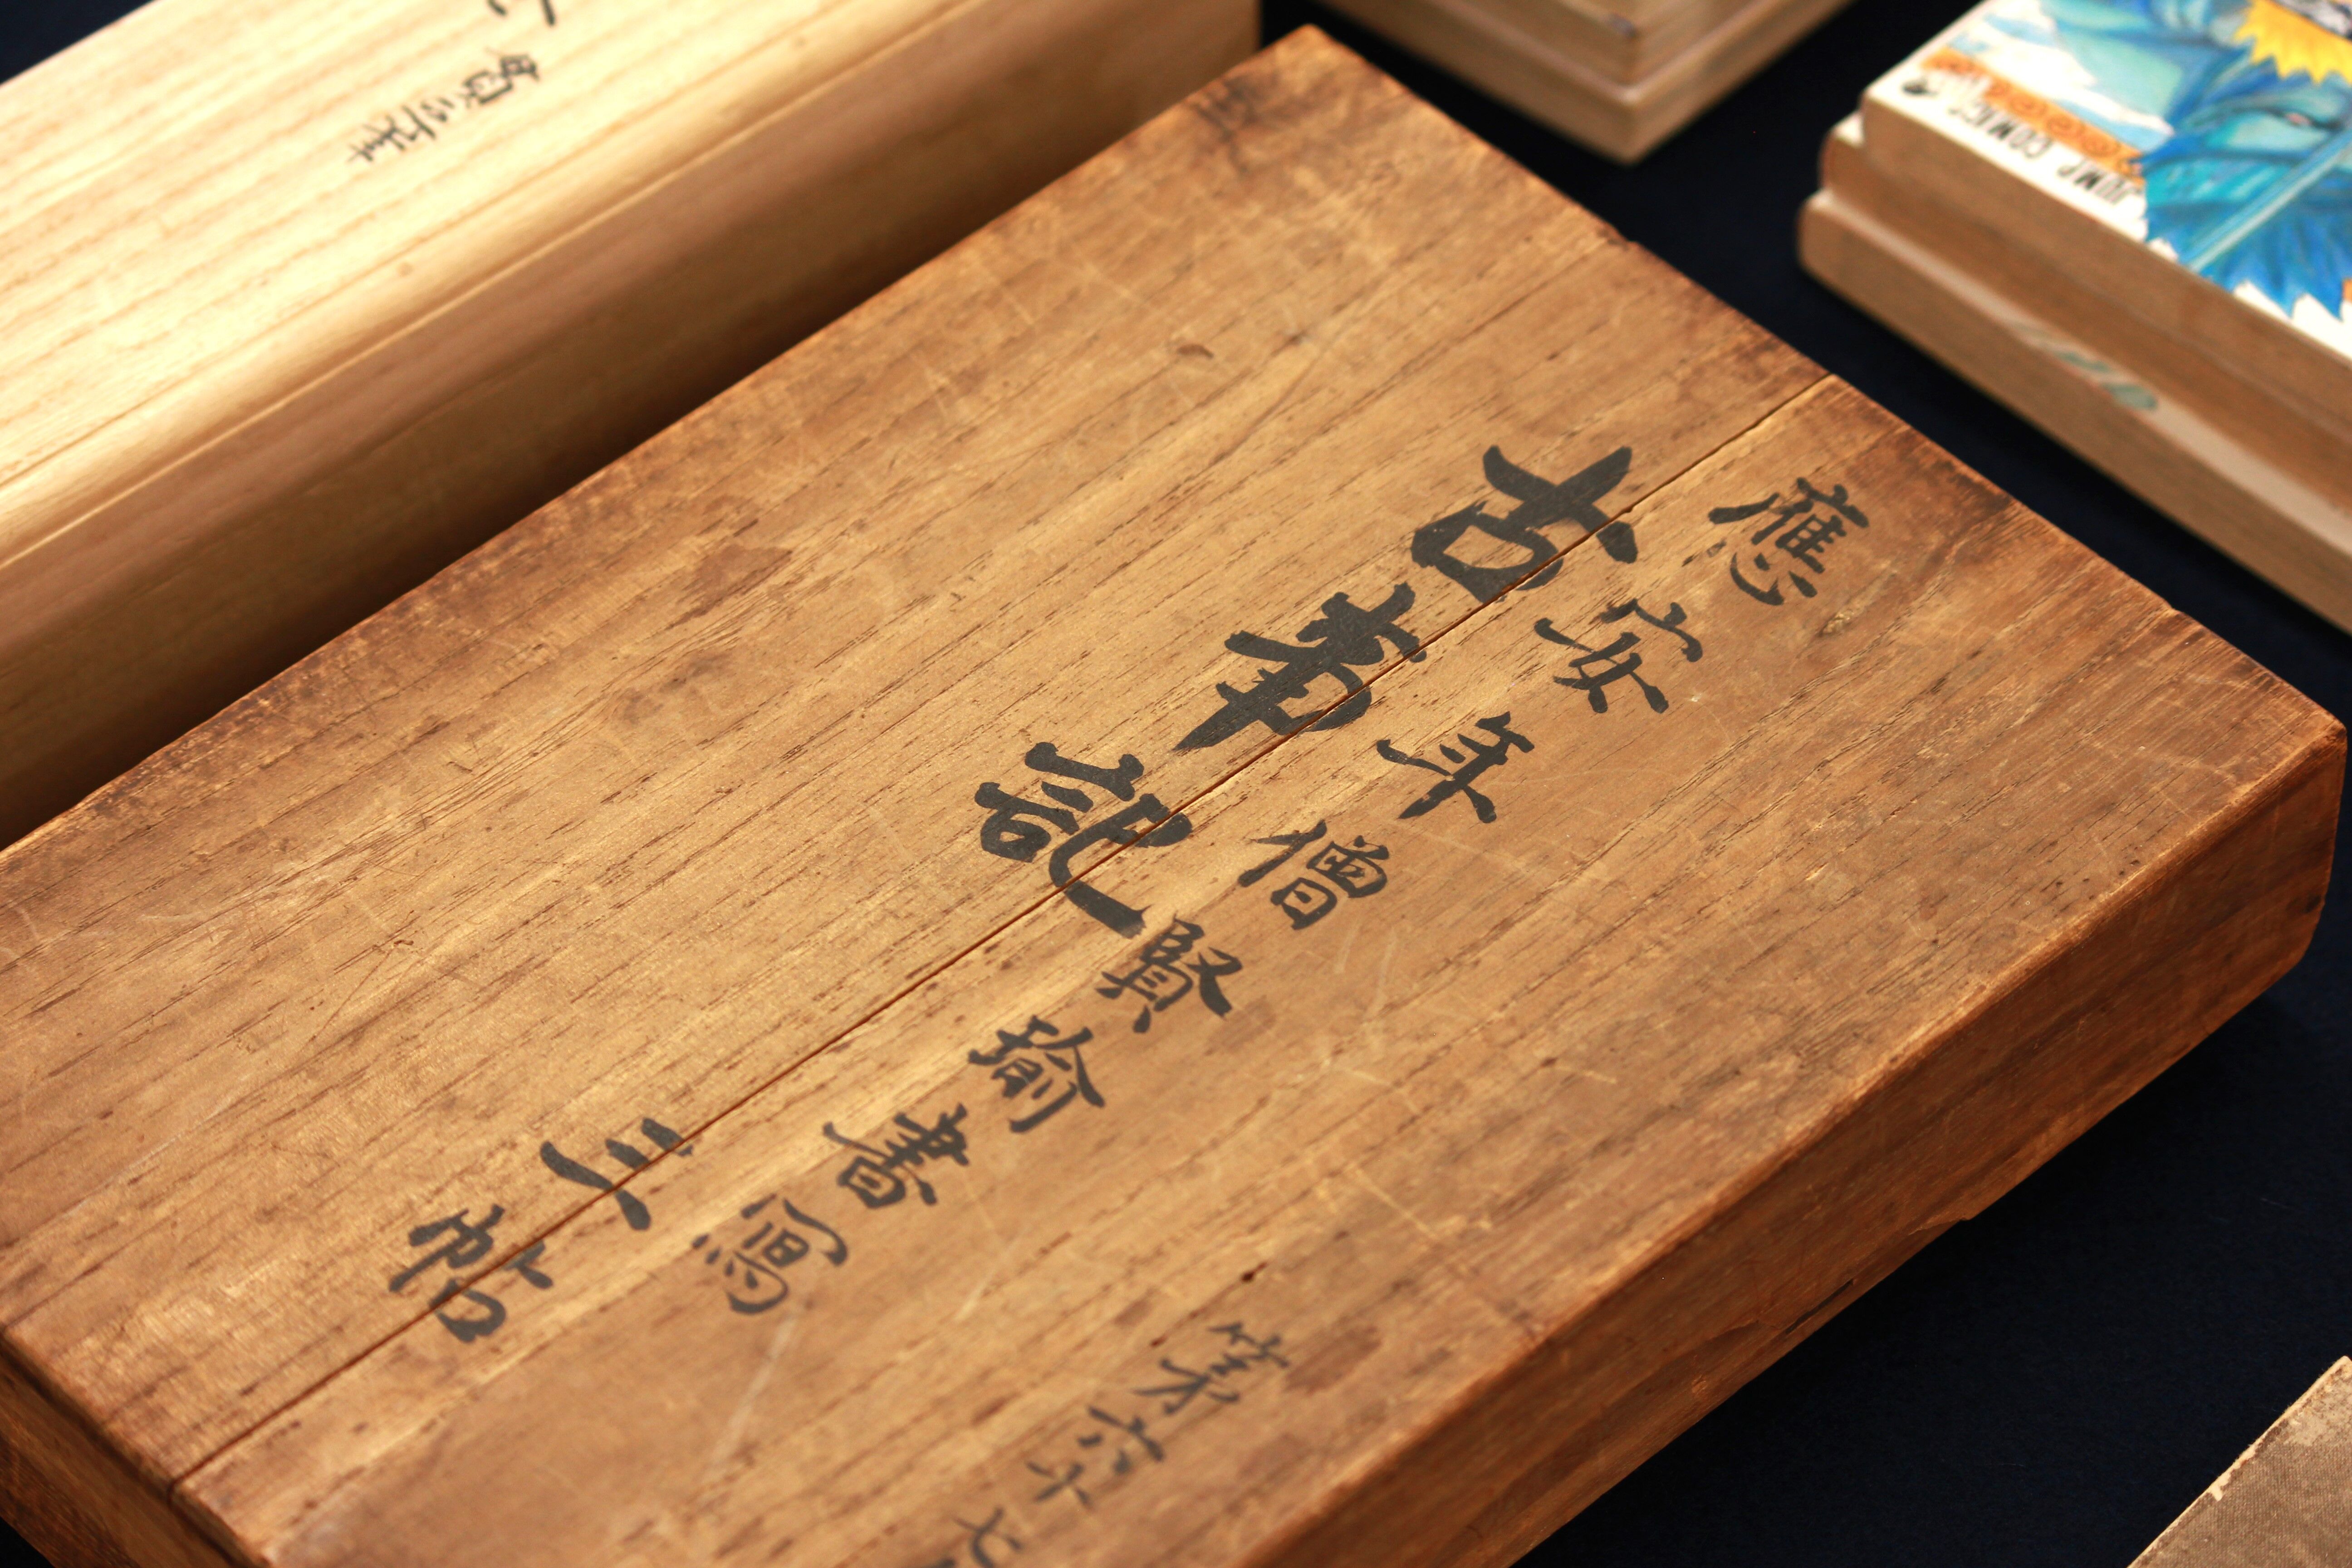 應安年僧賢瑜書寫
古事記 三帖
第六十七
JUMP COMICS